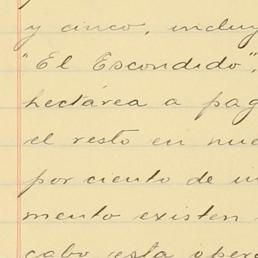 y cinco, incluy
"El Escondido",
hectárea a pag
el resto en nue
por ciento de in
mento existen
cabo esta opera